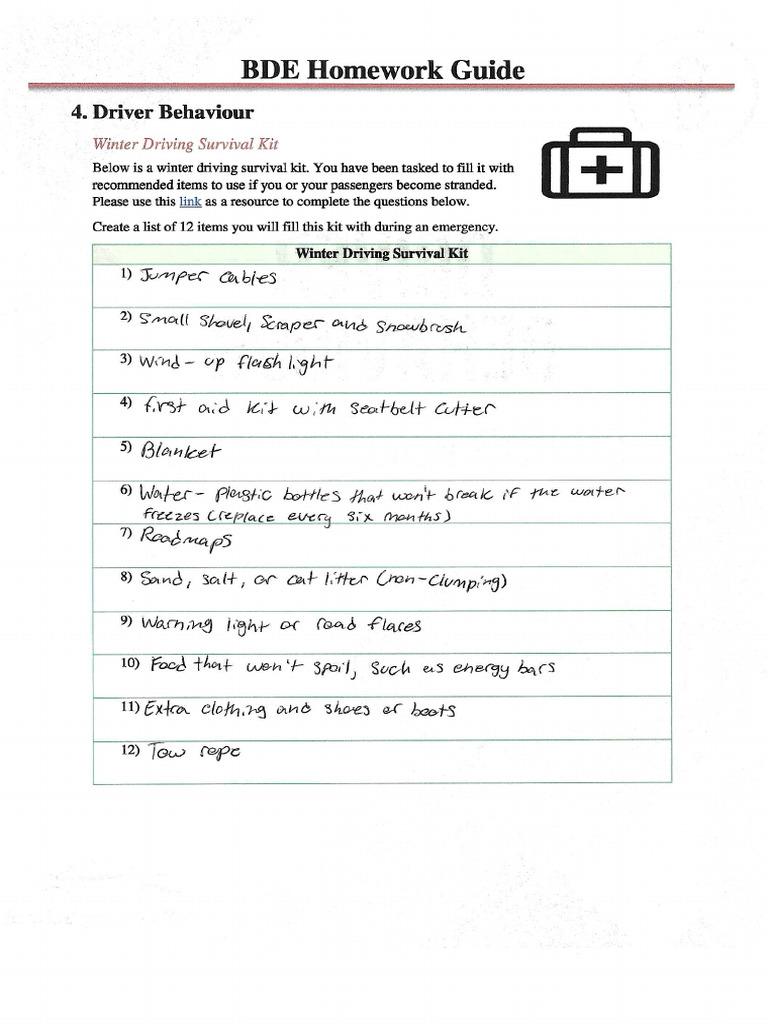 BDE Homework Guide
4. Driver Behaviour
Winter Driving Survival Kit
Below is a winter driving survival kit. You have been tasked to fill it with
recommended items to use if you or your passengers become stranded.
Please use this link as a resource to complete the questions below.
Create a list of 12 items you will fill this kit with during an emergency.
Winter Driving Survival Kit
1) Jumper cables
2) Small shovel, scraper and snowbrush
3) Wind-up flashlight
4) first aid kit with seatbelt cutter
5) Blanket
6) Water- plastic bottles that won't break if the water
freezes (replace every six months)
7) Roadmaps
8) Sand, salt, or cat litter (non-clumping)
9) Warning light or road flares
10) Food that won't spoil, such as energy bars
11) Extra clothing and shoes or boots
12) Tow rope